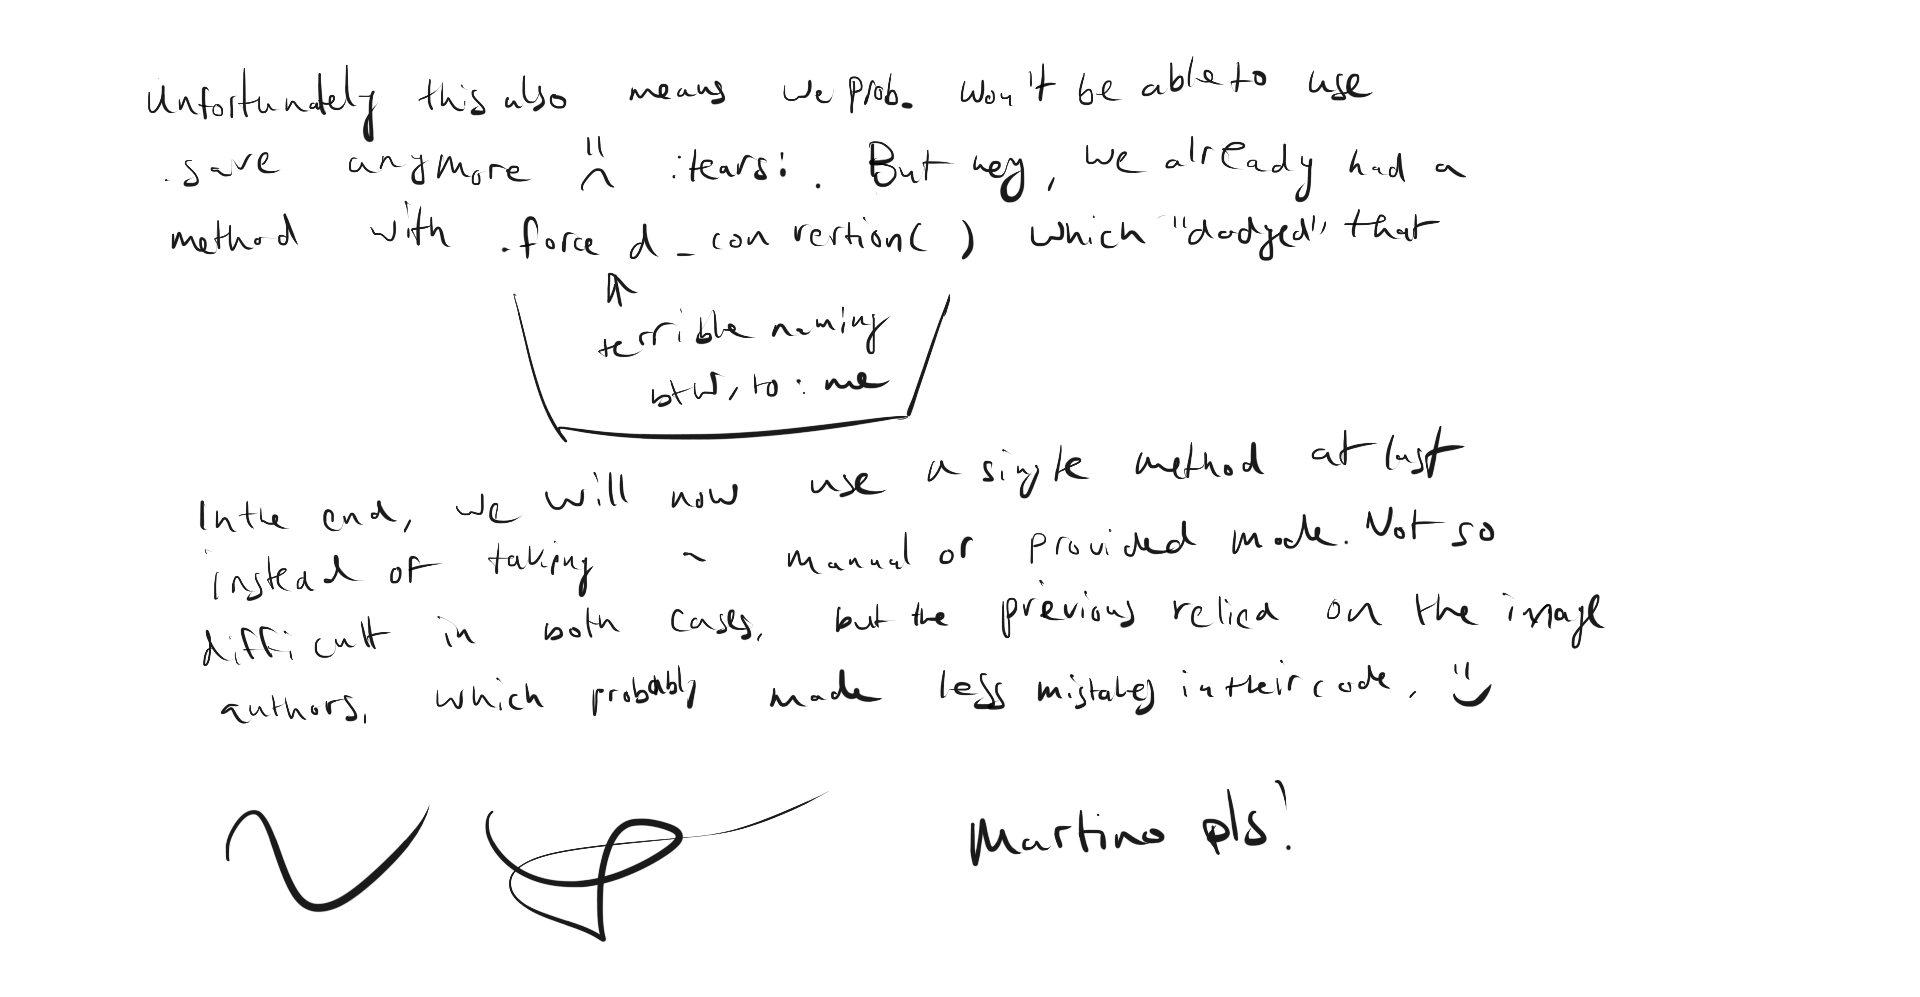 Unfortunately this also means we prob. won't be able to use
.save anymore :tears:. But hey, we already had a
method with .forced_convertion() which "dodged" that
terrible naming
btw, to: me
In the end, we will now use a single method at last
instead of taking a manual or provided mode. Not so
difficult in both cases, but the previous relied on the image
authors, which probably made less mistakes in their code.
Martino pls!